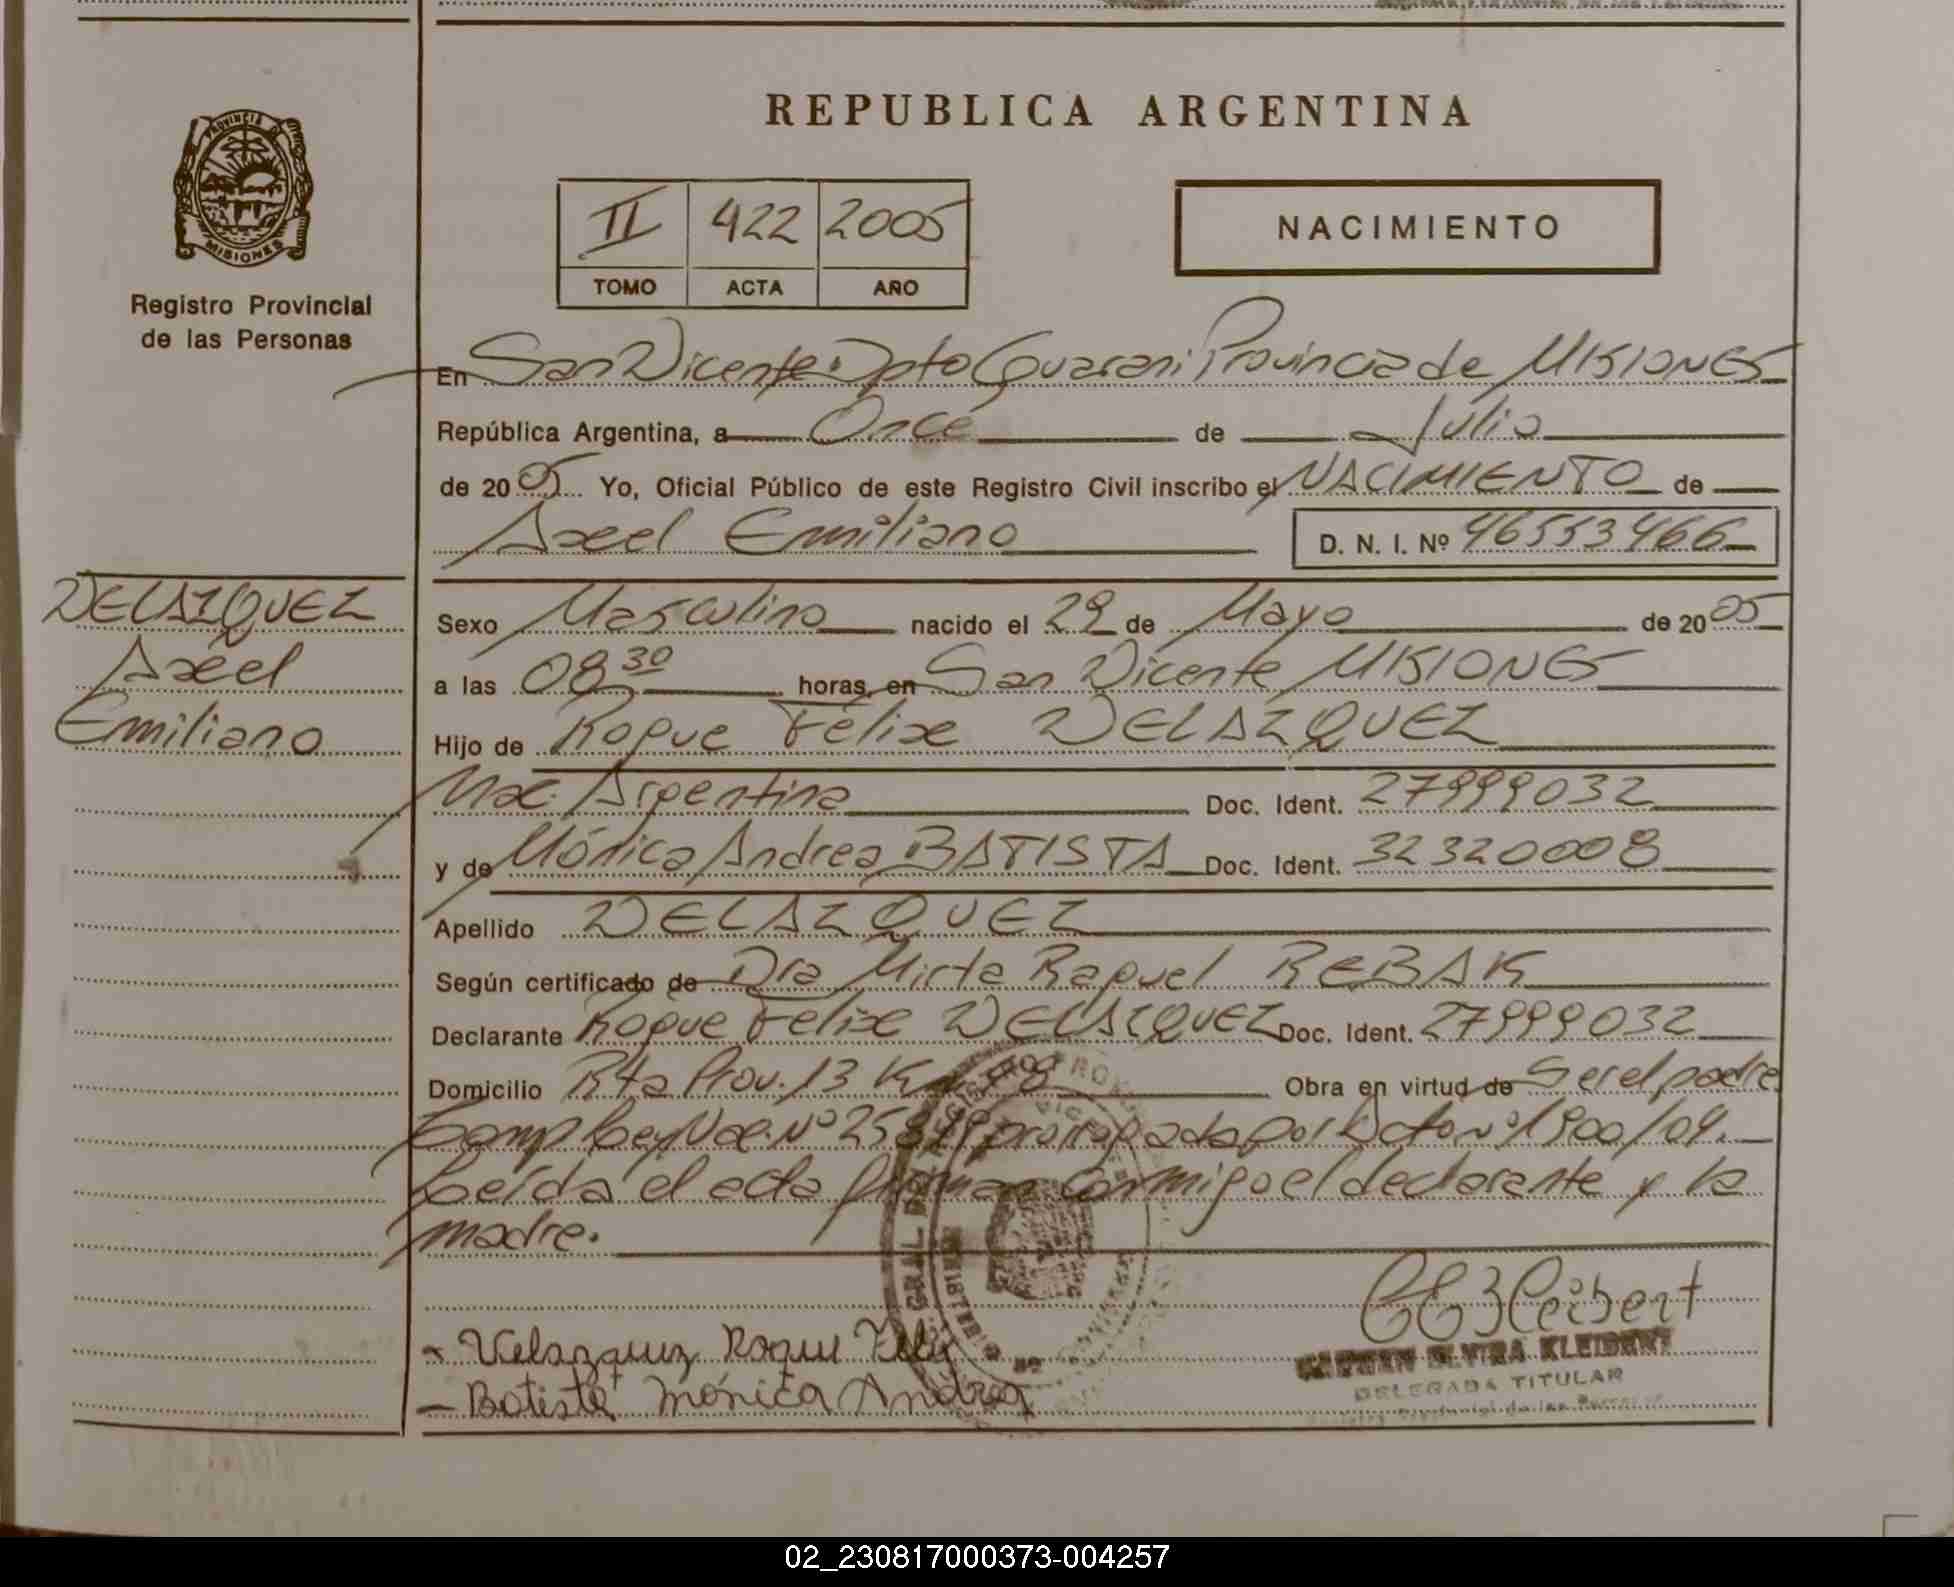 REPUBLICA ARGENTINA
PROVINCIA DE
MISIONES
Registro Provincial
de las Personas
II 422 2005
TOMO ACTA AÑO
NACIMIENTO
En San Vicente Dpto Guarani Provincia de MISIONES
República Argentina, a Once de Julio
de 2005 Yo, Oficial Público de este Registro Civil inscribo el NACIMIENTO de
Axel Emiliano D. N. I. Nº 46553466
VELAZQUEZ
Axel
Emiliano
Sexo Masculino nacido el 29 de Mayo de 2005
a las 08 30 horas, en San Vicente MISIONES
Hijo de Roque Félix VELAZQUEZ
Nac. Argentina Doc. Ident. 27999032
y de Mónica Andrea BATISTA Doc. Ident. 32320008
Apellido VELAZQUEZ
Según certificado de Dra Mirta Raquel REBAK
Declarante Roque Felix VELAZQUEZ Doc. Ident. 27999032
Domicilio Rta Prov. 13 Km 08 Obra en virtud de Ser el padre
Comp Ley Nac. Nº 25819 prorrogada por Dcto nº 1900/04.
Leída el acta firman conmigo el declarante y la
madre.
- Velazquez Roque Felix
- Batista Mónica Andrea
CEKleibert
CARMEN ELVIRA KLEIBERT
DELEGADA TITULAR
Registro Provincial de las Personas
02_230817000373-004257